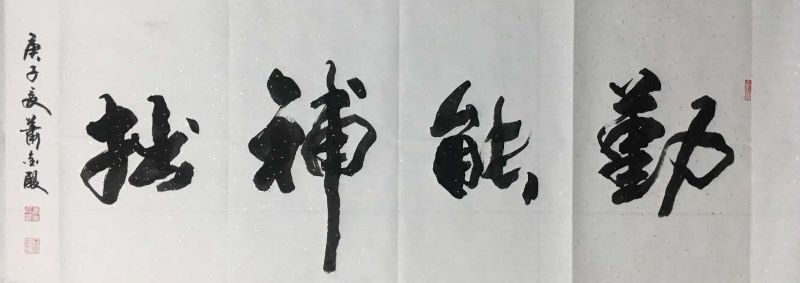 勤能補拙
庚子夏蕭金殿